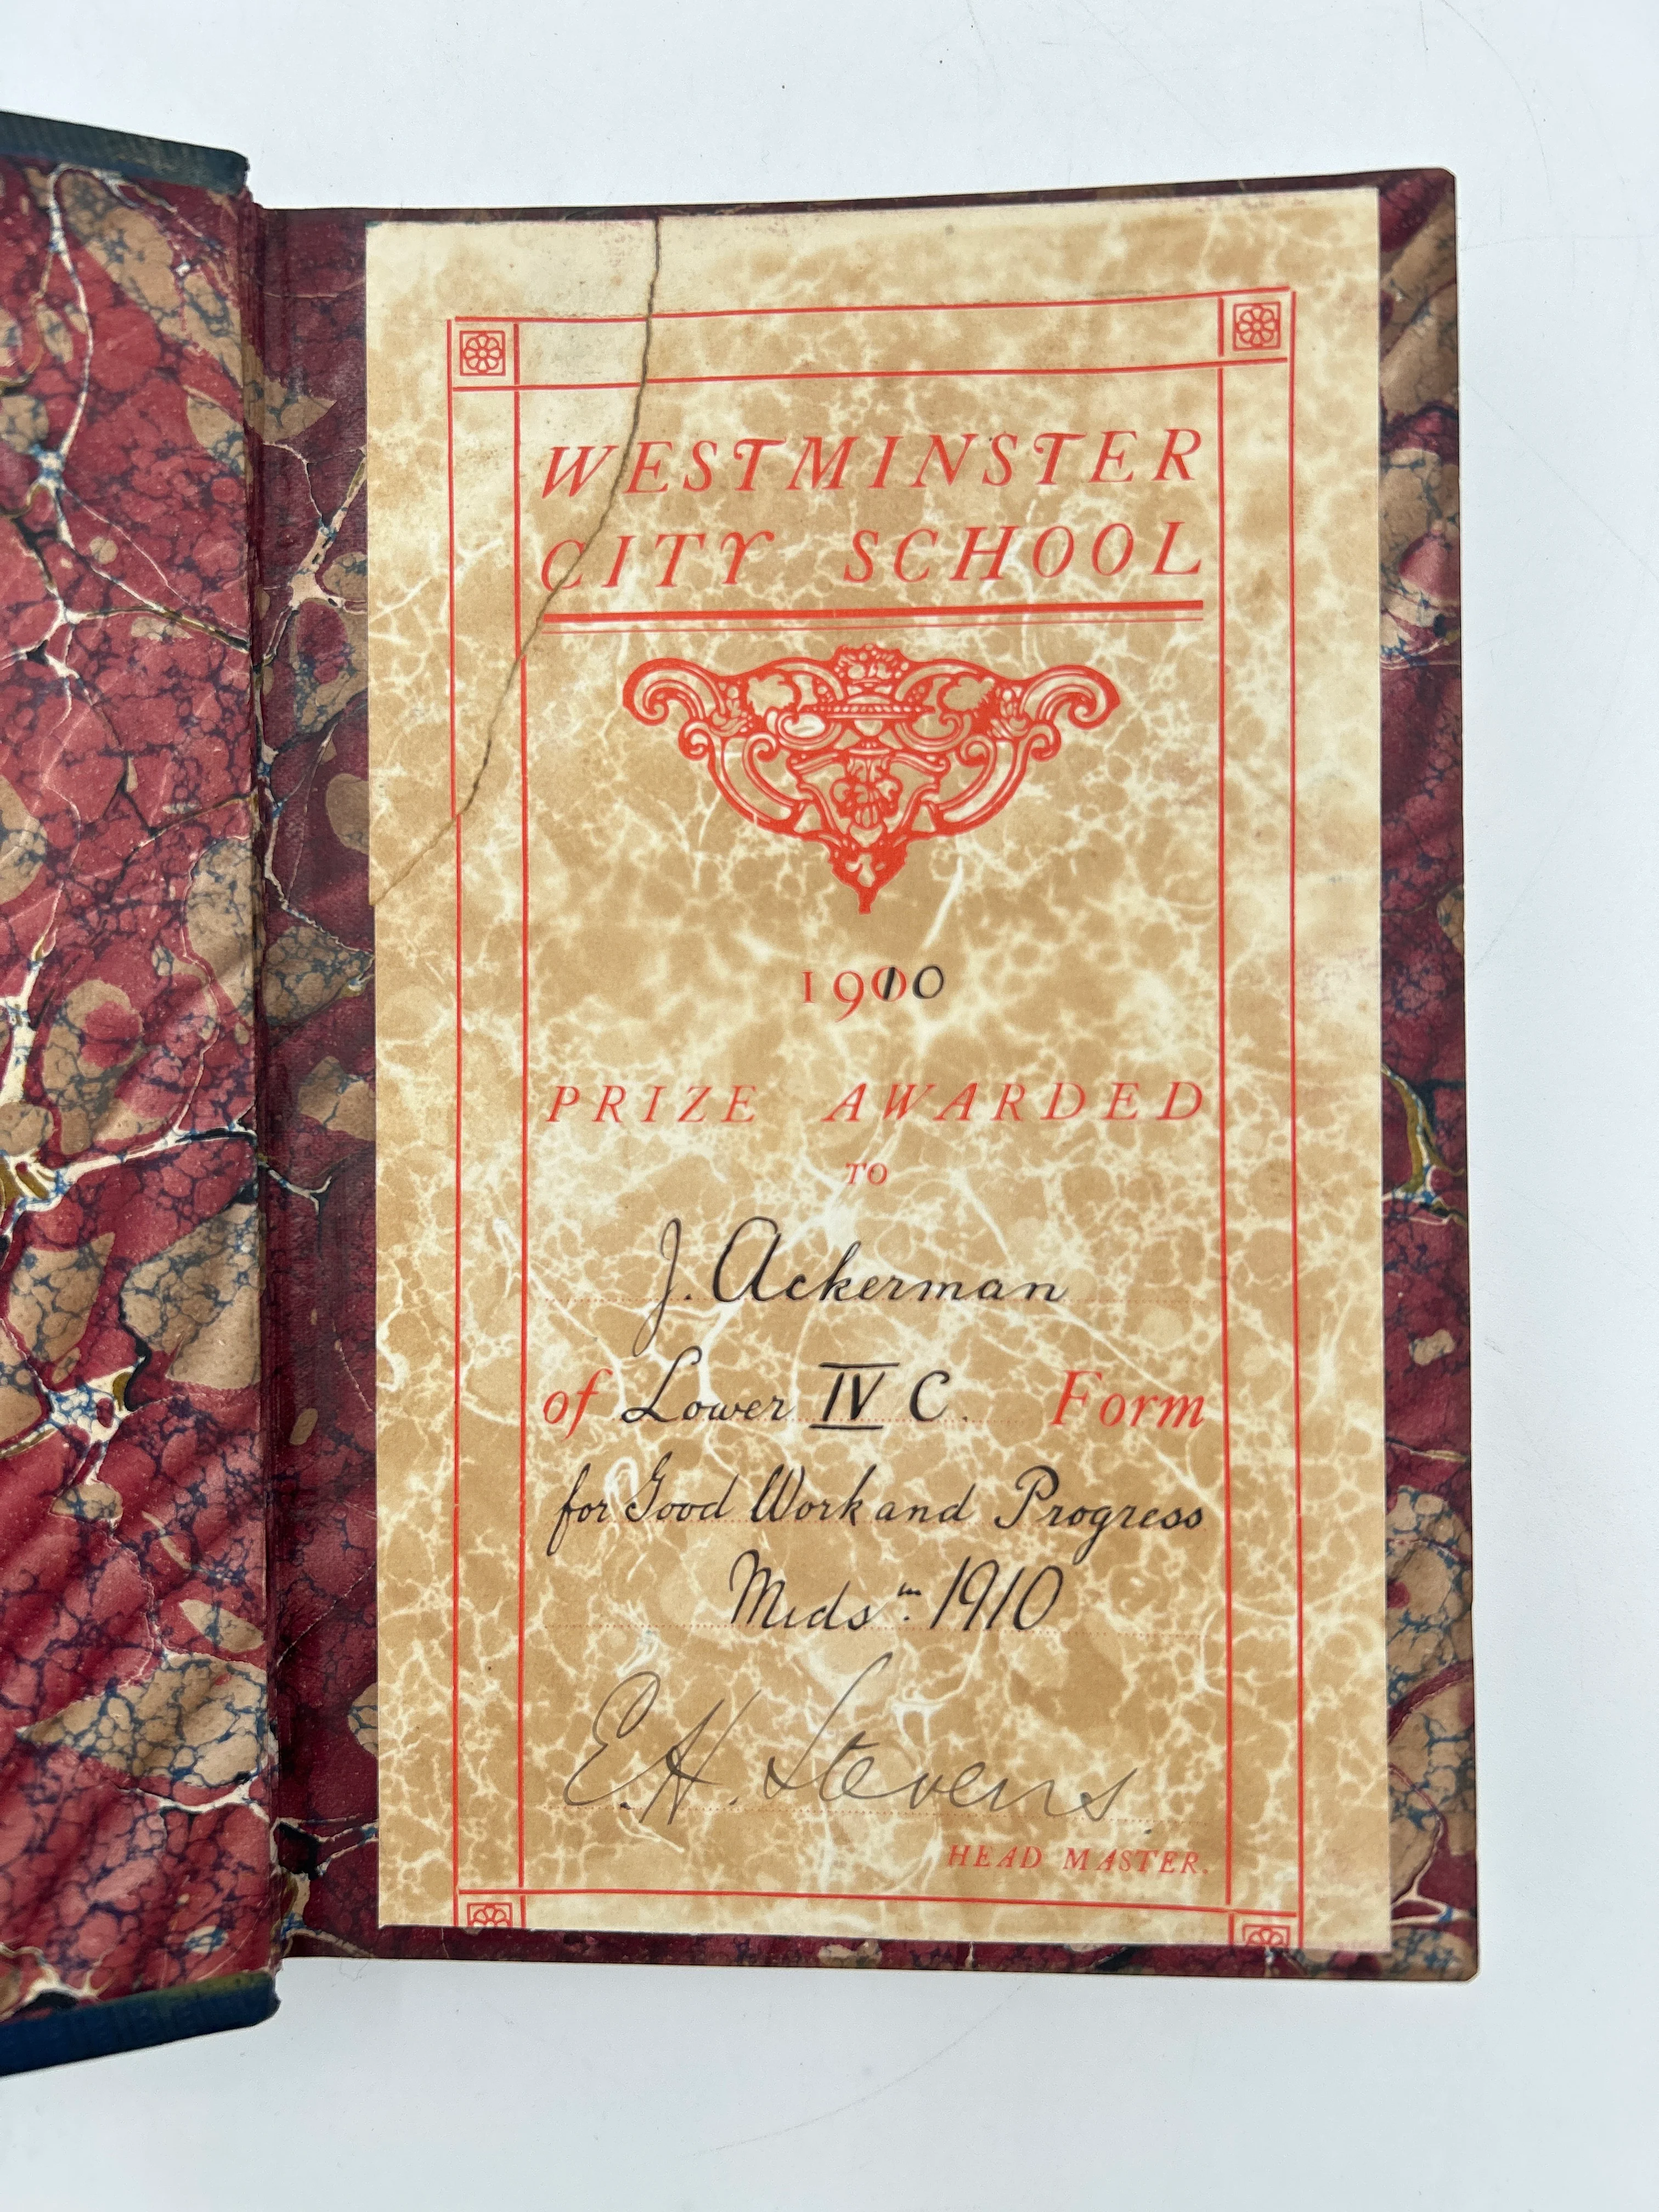 WESTMINSTER
CITY SCHOOL
1910
PRIZE AWARDED
TO
J. Ackerman
of Lower IV C. Form
for Good Work and Progress
Mids^m. 1910
E.H. Stevens.
HEAD MASTER.